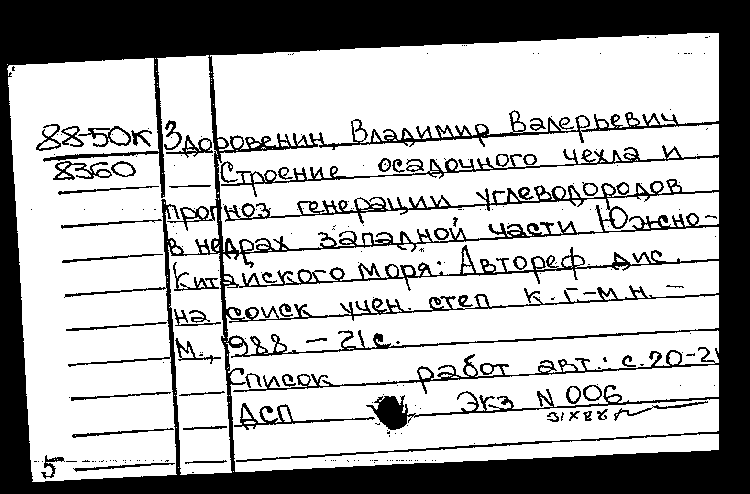 88-50к Здоровенин, Владимир Валерьевич
8360 Строение осадочного чехла и
прогноз генерации углеводородов
в недрах западной части Южно-
Китайского моря: Автореф. дис.
на соиск учен. степ к. г.-м.н. –
М., 1988. – 21с.
Список работ авт.: с.20-21
ДСП Экз N 006
5